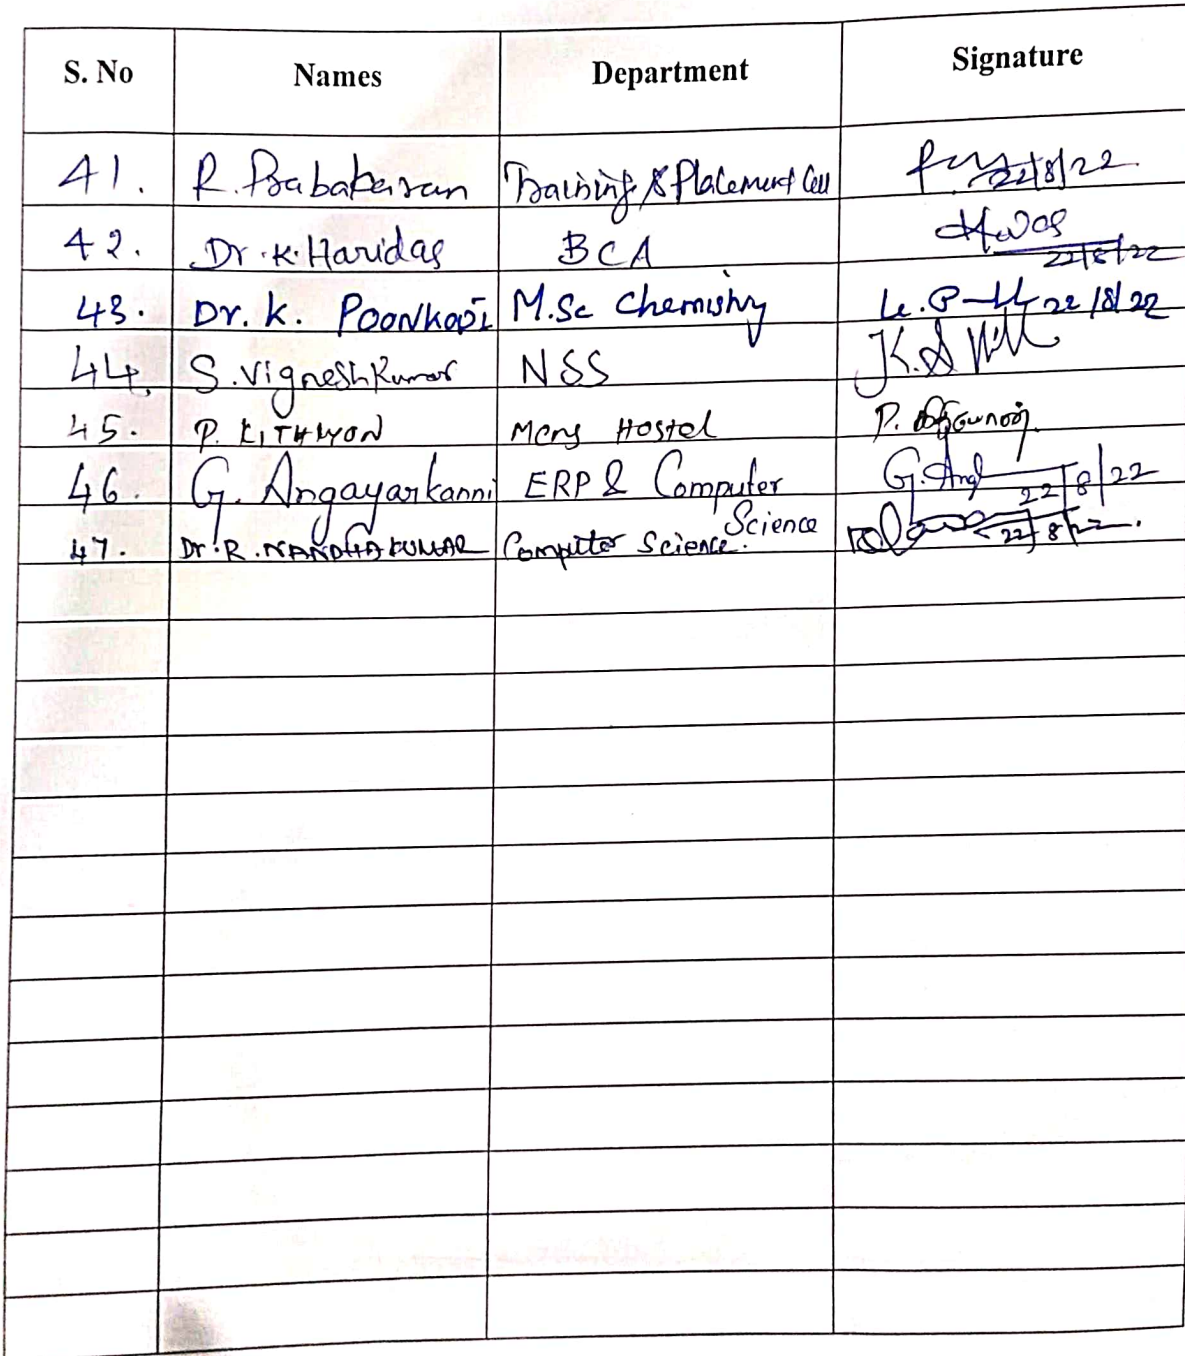 S. No Names Department Signature
41. R. Prabakaran Training & Placement Cell 22/8/22
42. Dr. K. Haridas BCA 22/8/22
43. Dr. K. POONKODI M.Sc Chemistry 22/8/22
44. S. Vignesh Kumar NSS
45. P. Mens Hostel P.
46. G. Angayarkanni ERP & Computer Science G. Ang 22/8/22
47. Dr. R. NANDHAKUMAR Computer Science. 22/8/22.